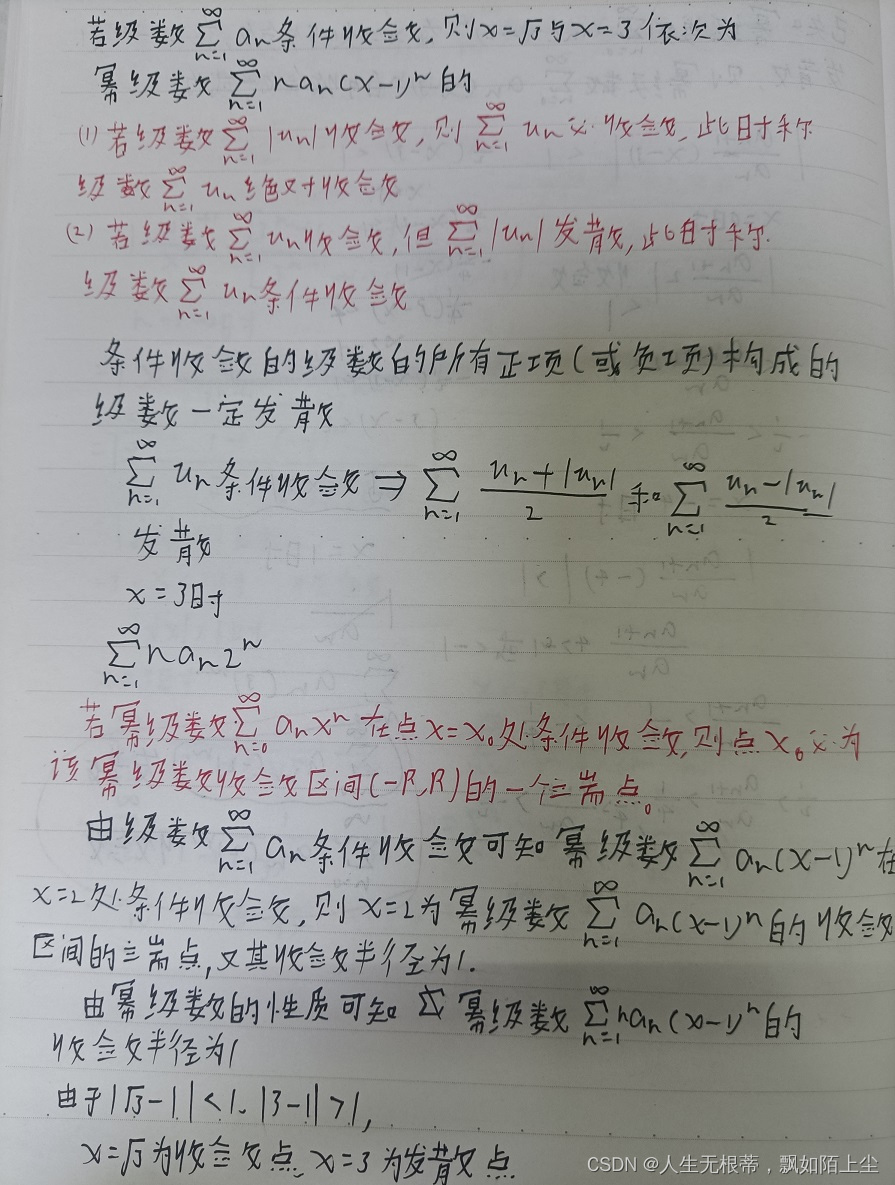 若级数∑_{n=1}^{∞} aₙ条件收敛,则x=√3与x=3依次为
幂级数∑_{n=1}^{∞} naₙ(x-1)ⁿ的
(1) 若级数∑_{n=1}^{∞} |uₙ|收敛,则∑_{n=1}^{∞} uₙ必收敛,此时称
级数∑_{n=1}^{∞} uₙ绝对收敛
(2) 若级数∑_{n=1}^{∞} uₙ收敛,但∑_{n=1}^{∞} |uₙ|发散,此时称
级数∑_{n=1}^{∞} uₙ条件收敛
条件收敛的级数的所有正项(或负项)构成的
级数一定发散
∑_{n=1}^{∞} uₙ条件收敛⇒∑_{n=1}^{∞} (uₙ+|uₙ|)/2 和∑_{n=1}^{∞} (uₙ-|uₙ|)/2
发散
x=3时
∑_{n=1}^{∞} naₙ2ⁿ
若幂级数∑_{n=0}^{∞} aₙxⁿ在点x=x₀处条件收敛,则点x₀必为
该幂级数收敛区间(-R,R)的一个端点。
由级数∑_{n=1}^{∞} aₙ条件收敛可知幂级数∑_{n=1}^{∞} aₙ(x-1)ⁿ在
x=2处条件收敛,则x=2为幂级数∑_{n=1}^{∞} aₙ(x-1)ⁿ的收敛
区间的端点,又其收敛半径为1.
由幂级数的性质可知 幂级数∑_{n=1}^{∞} naₙ(x-1)ⁿ的
收敛半径为1
由于|√3-1|<1、|3-1|>1,
x=√3为收敛点、x=3为发散点
CSDN @人生无根蒂，飘如陌上尘